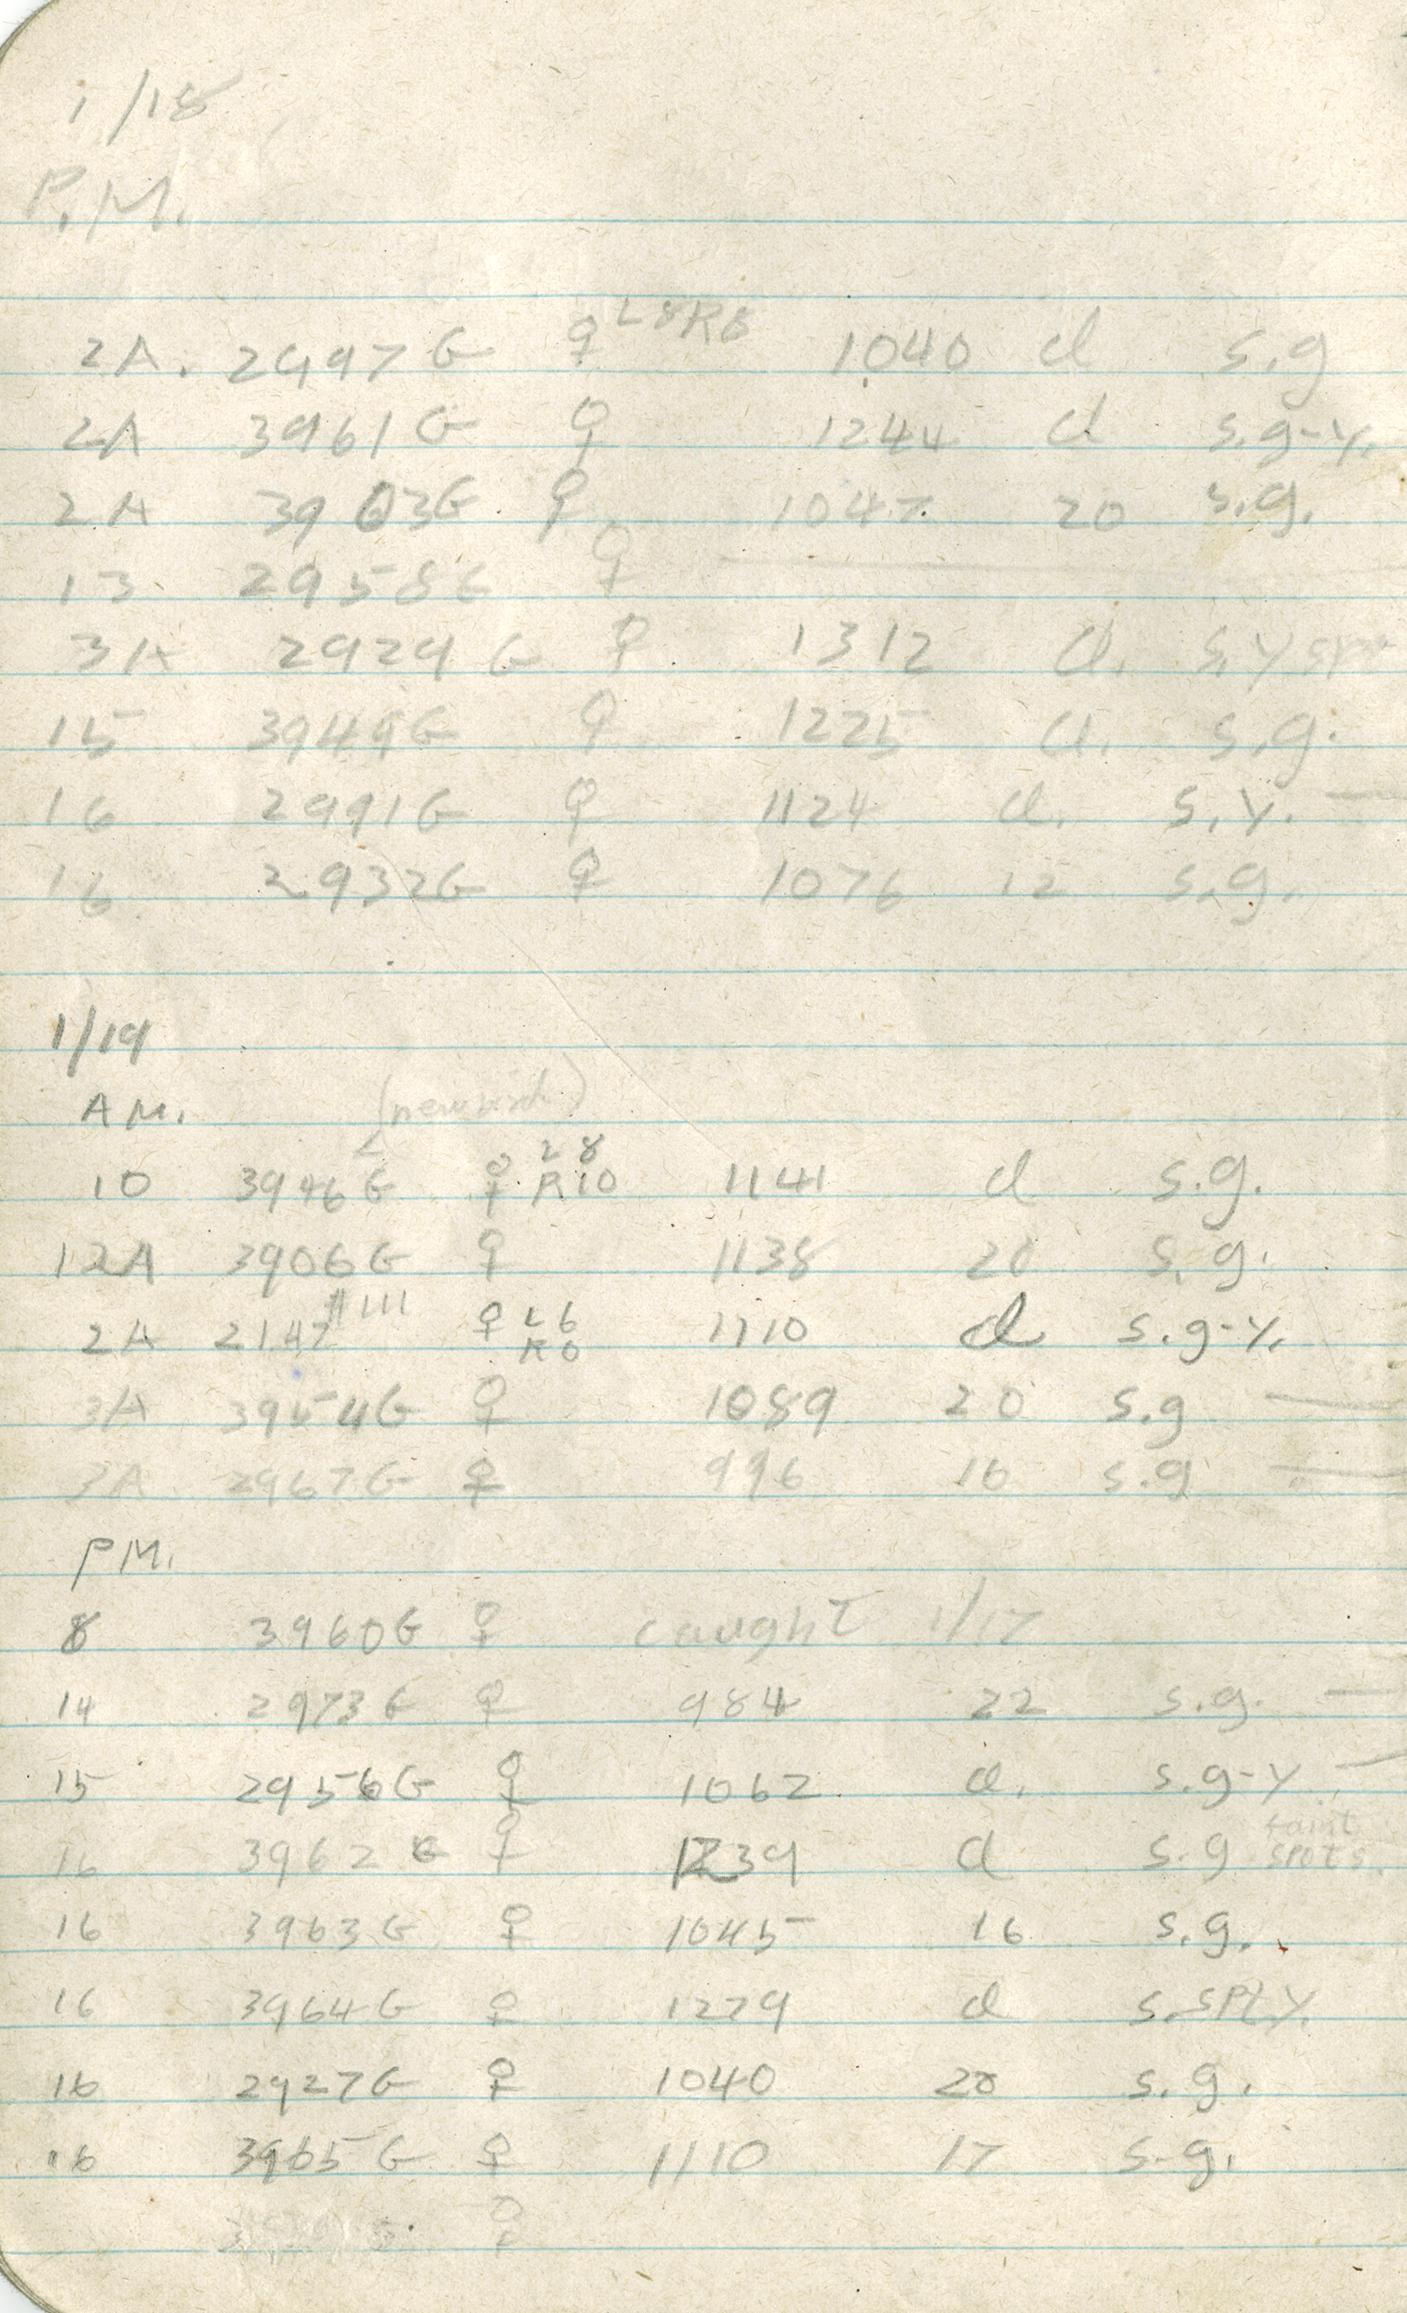 1/18
P.M.
2A. 2997G ♀ L8R8 1040 d s.g
2A 3961G ♀ 1244 d s.g-y.
2A 3903G ♀ 1047 20 s.g.
13 2958G ♀
3A 2929G ♀ 1312 d. s.y
15 3949G ♀ 1225 d. s.g.
16 2991G ♀ 1124 d. s.y. —
16 2932G ♀ 1076 12 s.g.
1/19
AM.
(new bird)
10 3946G ♀ L8 R10 1141 d s.g.
12A 3906G ♀ 1138 20 s.g.
2A 2147 #111 ♀ L6 R6 1110 d s.g-y.
3A 3954G ♀ 1089 20 s.g —
3A 2967G ♀ 996 16 s.g —
PM.
8 3960G ♀ caught 1/17
14 2973G ♀ 984 22 s.g. —
15 2956G ♀ 1062 d. s.g-y —
16 3962G ♀ 1239 d s.g faint spots.
16 3963G ♀ 1045 16 s.g.
16 3964G ♀ 1279 d s.spt.y.
16 2927G ♀ 1040 20 s.g.
16 3965G ♀ 1110 17 s.g.
♀